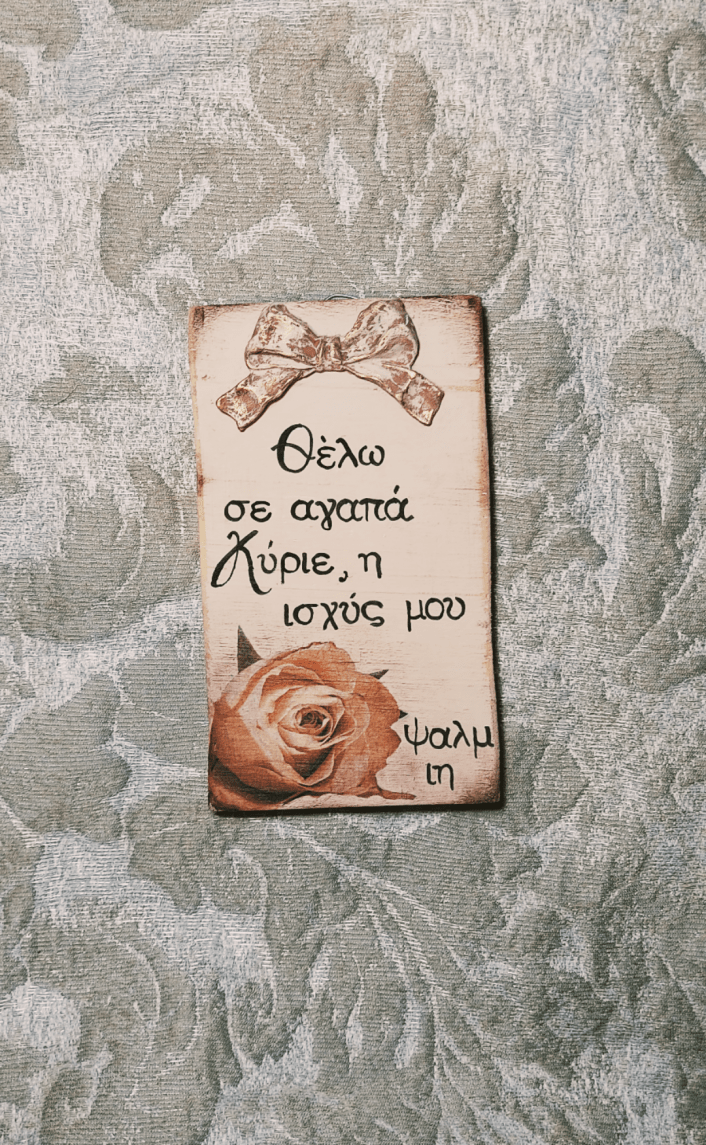 Θέλω
σε αγαπά
Κύριε, η
ισχύς μου
ψαλμ
ιη